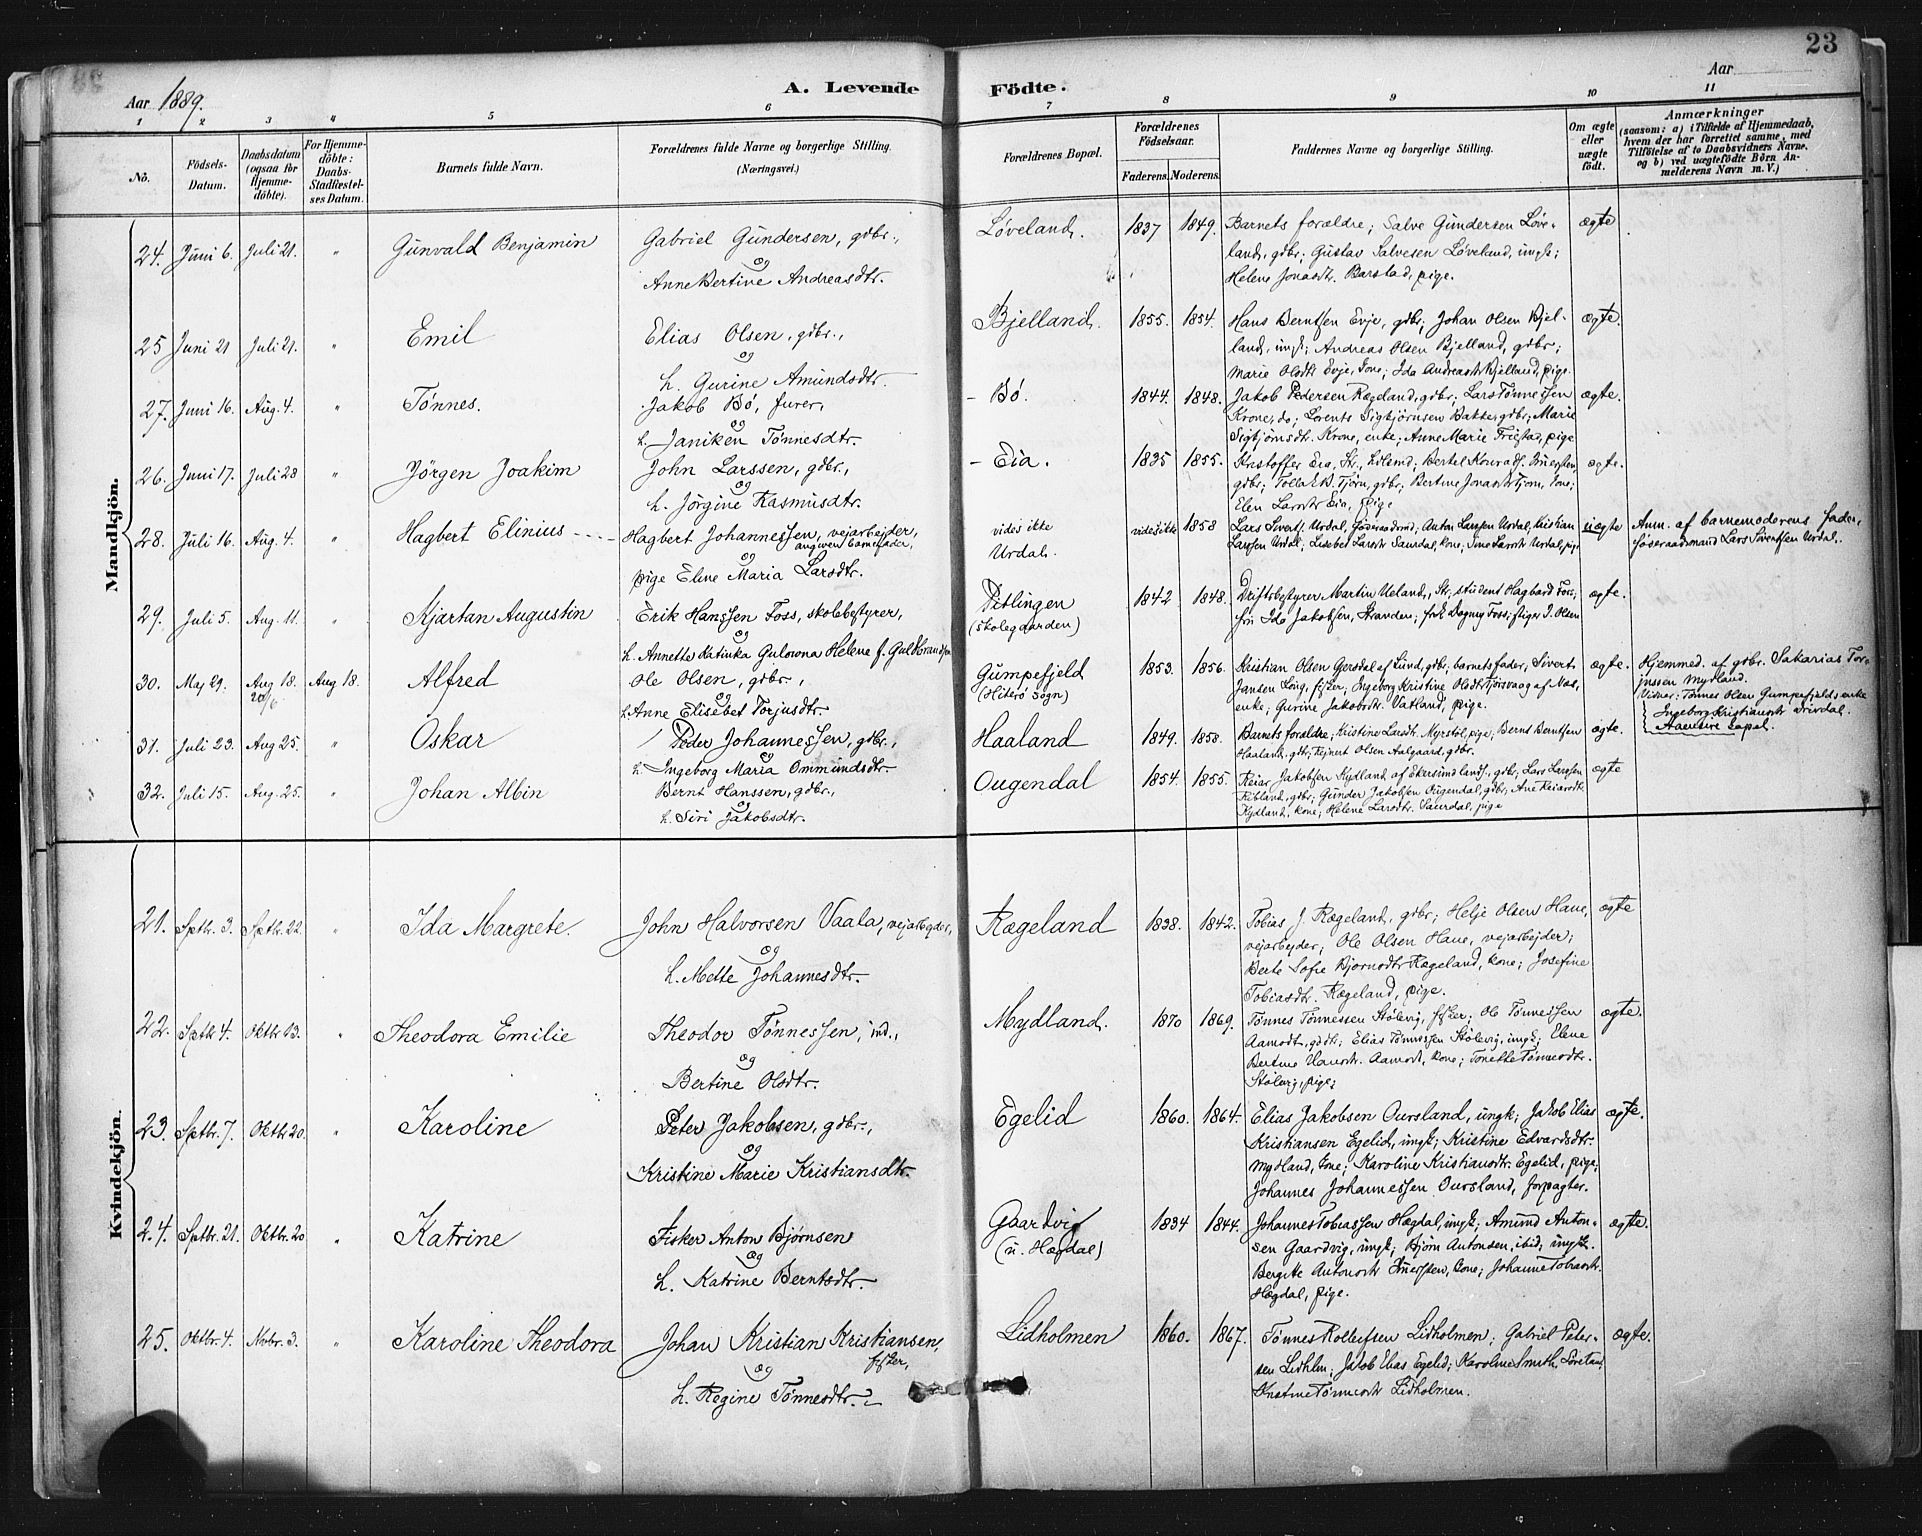 23
Aar 1889.
A. Levende Födte.
Aar
1 2 3 4 5 6 7 8 9 10 11
No.
Födsels-Datum.
Daabsdatum (ogsaa for Hjemme-döbte).
For Hjemme-döbte: Daabs-Stadfæstel-ses Datum.
Barnets fulde Navn.
Forældrenes fulde Navne og borgerlige Stilling. (Næringsvei.)
Forældrenes Bopæl.
Forældrenes Födselsaar.
Faderens. Moderens.
Faddernes Navne og borgerlige Stilling.
Om ægte eller uægte födt.
Anmærkninger
(saasom: a) i Tilfælde af Hjemmedaab, hvem der har forrettet samme, med Tilföielse af to Daabsvidners Navne, og b) ved uægtefödte Börn An-melderens Navn m. V.)
Mandkjön.
24. Juni 6. Juli 21. " Gunvald Benjamin Gabriel Gundersen, gdbr., Løveland. 1837 1849. Barnets forældre; Salve Gundersen Løve- ægte
og land, gdbr; Gustav Salvesen Løveland, ungk;
Anne Bertine Andreasdtr. Helene Jonasdtr. Barstad, pige.
25 Juni 21 Juli 21. " Emil Elias Olsen, gdbr., Bjelland. 1855. 1854. Hans Berntsen Evje, gdbr; Johan Olsen Bjel- ægte.
og land, ungk; Andreas Olsen Bjelland, gdbr;
h. Gurine Amundsdtr. Marie Olsdtr Evje, kone; Ida Andreasdtr Bjelland, pige.
27. Juni 16. Aug. 4. " Tönnes. Jakob Bö, furer, - Bö. 1844. 1848. Jakob Pedersen Rægeland, gdbr; Lars Tønnessen ægte.
og Krone, do; Lorents Sigbjörnsen Bakke, gdbr; Marie
h. Janiken Tönnesdtr. Sigbjörnsdtr. Krone, enke; Anne Marie Friestad, pige
26. Juni 17. Juli 28 " Jörgen Joakim John Larssen, gdbr., - Eia. 1835 1855. Kristoffer Eia, Bertel Konrads. ægte.
og gdbr; Tjörn, gdbr; Bertine Jonasdtr Tjörn, kone;
h. Jörgine Rasmusdtr. Elen Larsdtr Eia, pige
28. Juli 16. Aug. 4. " Hagbert Elinius Hagbert Johannessen, vejarbejder, vides ikke vides ikke 1858 Lars Sivertsen Urdal, Anton Larssen Urdal, Kristian uægte Anm. af barnemoderens fader,
angiven barnefader, og Urdal. Larssen Urdal; Lisebet Larsdtr Saurdal, kone; Sine Larsdtr Urdal, pige Lars Sivertsen Urdal.
pige Eline Maria Larsdtr.
29. Juli 5. Aug. 11. " Kjartan Augustin Erik Hanssen Foss, skolebestyrer, Pitlingen 1842 1848. Driftsbestyrer Martin Ueland, Str; student Hagbard Foss, ægte.
og (skolegaarden) frú Ida Jakobsen, Stranden; frk. Dagny Foss;
h. Annette Katinka Gulowna Helene f. Guldbrandsen
30. Maj 29. Aug 18. Aug 18. Alfred Ole Olsen, gdbr., Gumpefjeld 1853. 1856. Kristian Olsen Gersdal af Lund, gdbr; barnets fader, Sivert ægte. Hjemmed. af gdbr. Sakarias Tor-
20/6 og (Hiterö Sogn) Jansen Long, fisker; Ingeborg Kristine Olsdtr Tjörsvaag af Næs, jussen Mydland.
h. Anne Elisebet Torjusdtr. enke; Gurine Jakobsdtr. Vatland, pige. Vidner: Tønnes Olsen Gumpefjelds enke
Ingeborg Kristiansdtr Drivdal.
Aaensire kapel.
31. Juli 23. Aug 25. " Oskar Peder Johannessen, gdbr., Haaland 1849. 1858. Barnets forældre; Kristine Larsdtr. Myrstöl, pige; Bernt Berntsen ægte.
og Haaland, gdbr; Rejnert Olsen Aalgaard, gdbr.
h. Ingeborg Maria Ommundsdtr.
32. Juli 15. Aug. 25. " Johan Albin Bernt Hanssen, gdbr., Ougendal 1854. 1855. Reiar Jakobsen Kydland af Ekersund landsg., gdbr; Lars Larssen ægte
og Ribland, gdbr; Gunder Jakobsen Ougendal, gdbr; Ane Reiarsdtr.
h. Siri Jakobsdtr. Kydland, kone; Helene Larsdtr. Saurdal, pige
Kvindekjön.
21. Sptbr. 3. Sptbr. 22. " Ida Margrete. John Halvorsen Vaala, vejarbejder, Rægeland 1838. 1842. Tobias J. Rægeland, gdbr; Helje Olsen Haue, ægte
og vejarbejder; Ole Olsen Haue, vejarbejder;
h. Mette Johannesdtr. Berte Sofie Bjornsdtr Rægeland, kone; Josefine
Tobiasdtr. Rægeland, pige.
22. Sptbr 4. Oktbr 13. " Theodora Emilie Theodor Tönnessen, ind., Mydland. 1870 1869. Tönnes Tönnessen Stölevig, fisker; Ole Tönnessen ægte.
og Aamodt, gdbr; Elias Tönnessen Stölevig, ungk; Elene
Bertine Olsdtr. Bertine Aamodt, kone; Tonette Tönnesdtr.
Stölevig, pige;
23. Sptbr. 7. Oktbr 20. " Karoline Peter Jakobsen, gdbr., Egelid 1860. 1864. Elias Jakobsen Oursland, ungk; Jakob Elias ægte.
og Kristiansen Egelid, ungk; Kristine Edvardsdtr.
Kristine Marie Kristiansdtr. Mydland, kone; Karoline Kristiansdtr. Egelid, pige;
Johannes Johannessen Oursland, forpagter.
24. Sptbr. 21. Oktbr. 20 " Katrine Fisker Anton Björnsen Gaardvig 1834 1844. Johannes Tobiassen Hægdal, ungk; Amund Anton- ægte.
og (u. Hægdal) sen Gaardvig, ungk; Bjørn Antonsen, ibid, ungk.
h. Katrine Berntsdtr. Bergitte Antonsdtr kone; Johanne Tobiasdtr.
Hægdal, pige.
25. Oktbr. 4. Novbr. 3. " Karoline Theodora Johan Kristian Kristiansen, Lidholmen 1860. 1867. Tönnes Rolleifsen Lidholmen; Gabriel Peter- ægte.
fisker, og sen Lidhlm; Jakob Elias Egelid; Karoline Smith,
h. Regine Tönnesdtr. Kristine Tönnesdtr Lidholmen.